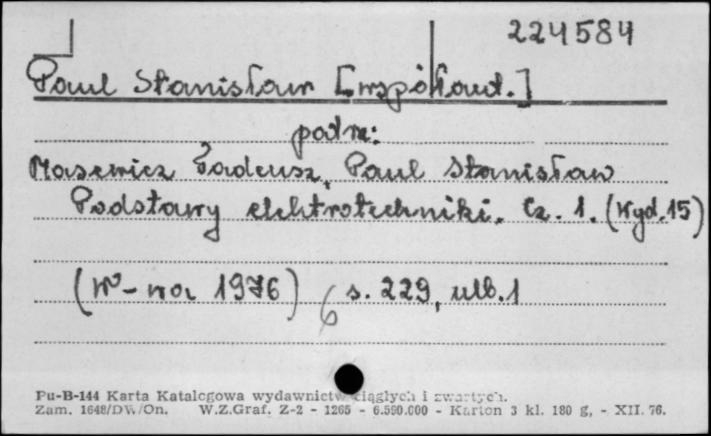 224584
Paul Stanisław [współaut.]
patrz:
Masewicz Tadeusz, Paul Stanisław
Podstawy elektrotechniki. Cz. 1. (Wyd. 15)
(W-wa 1976) s. 229, nlb. 1
6
Pu-B-144 Karta Katalogowa wydawnictw ciągłych i zwartych.
Zam. 1648/DW/On. W.Z.Graf. Z-2 - 1265 - 6.550.000 - Karton 3 kl. 180 g, - XII. 76.